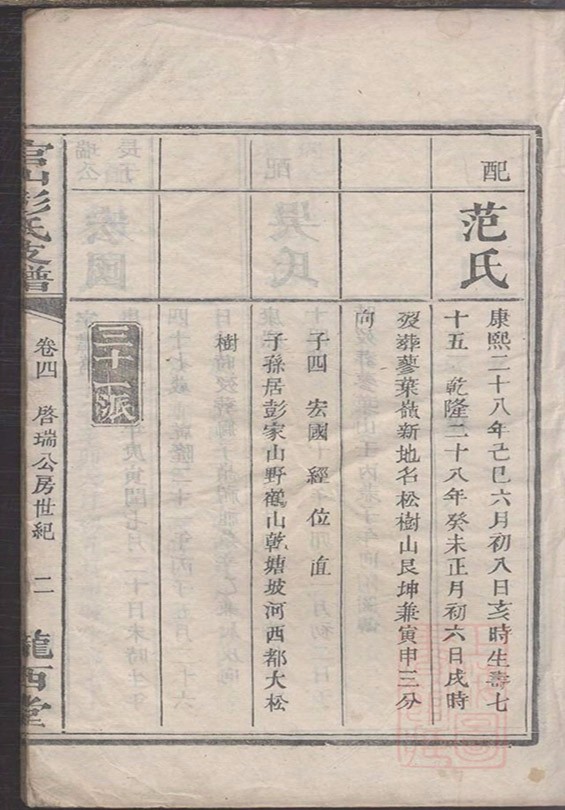 配
范氏
康熙二十八年己巳六月初八日亥時生壽七
十五 乾隆二十八年癸未正月初六日戌時
歿葬蓼葉嶺新地名松樹山艮坤兼寅申三分
向
子四 宏國 經 位 直
子孫居彭家山野鶴山乾塘坡河西都大松
樹
三十一派
官山彭氏支譜
卷四 啓瑞公房世紀 二
隴西堂